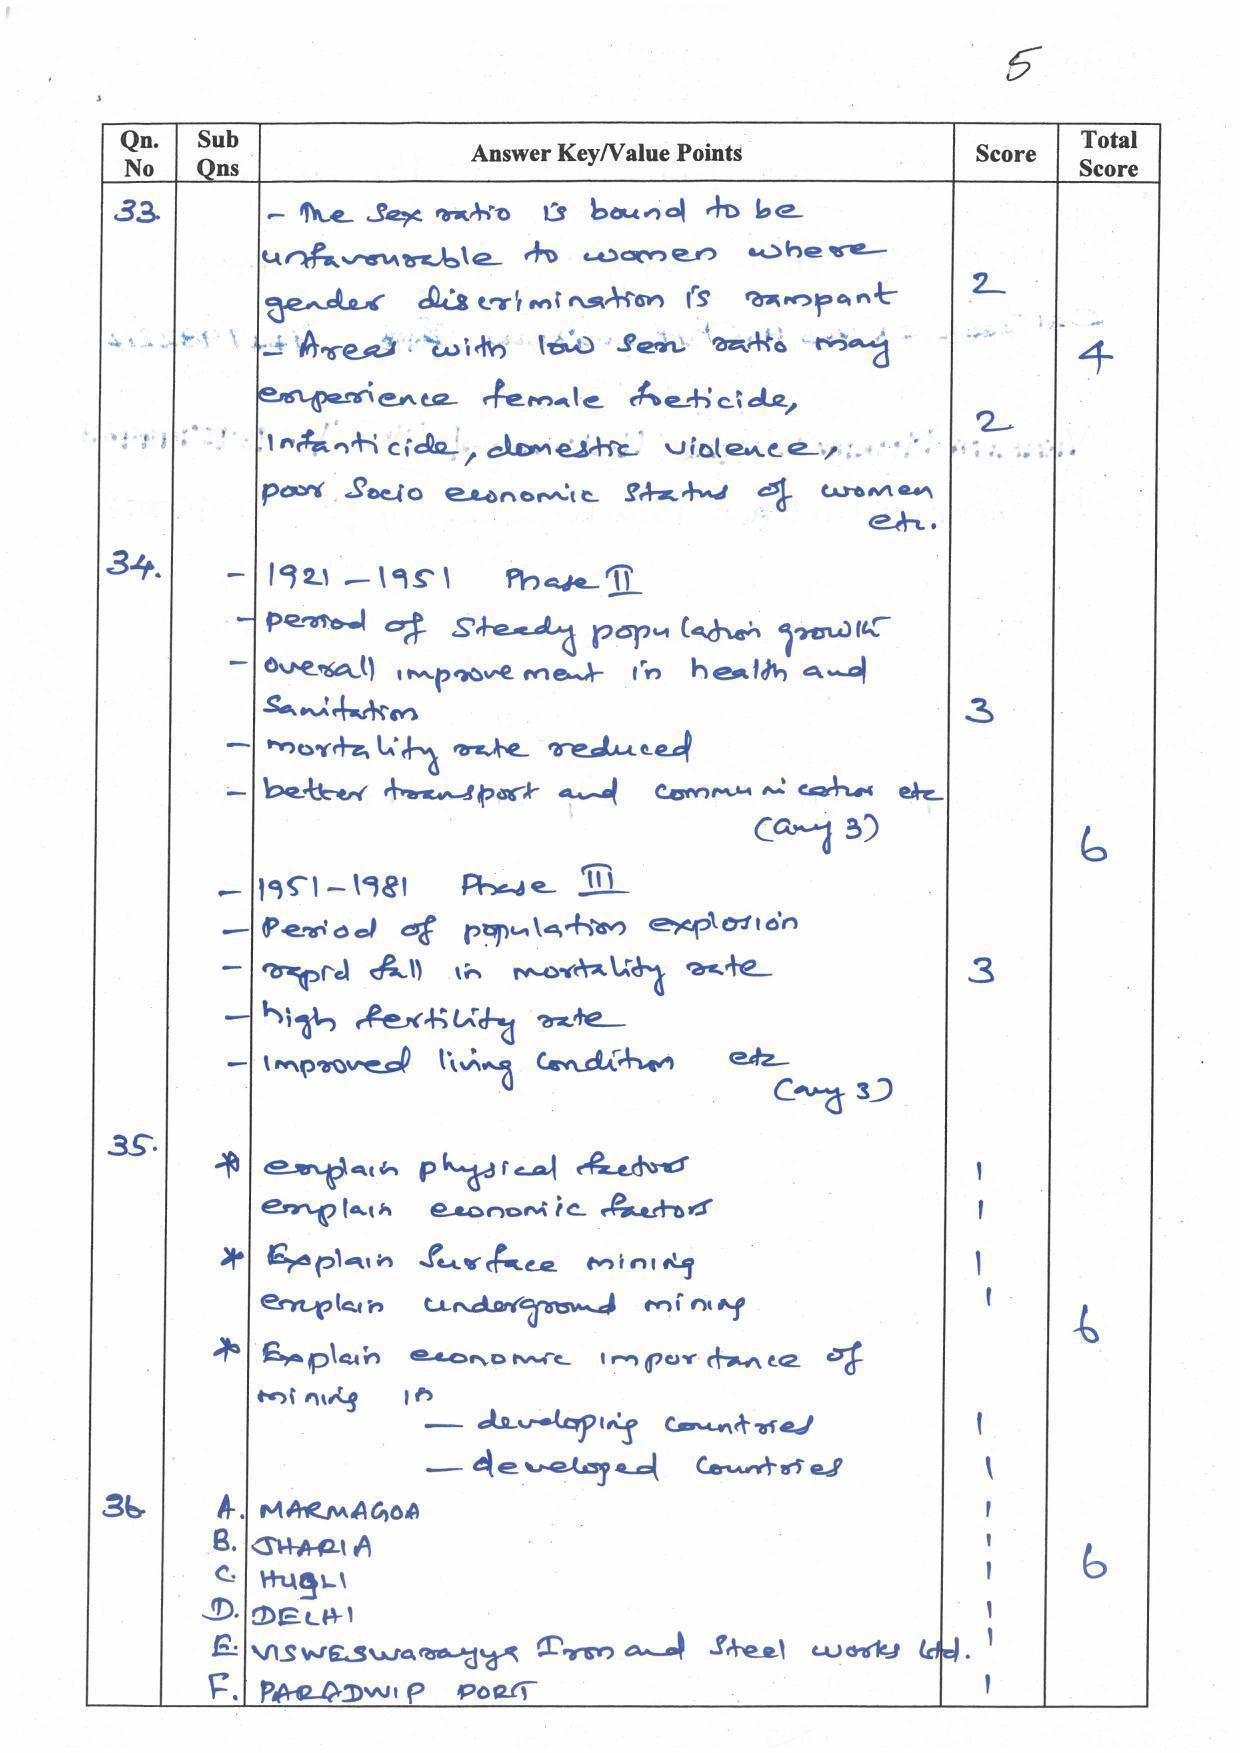 5
Qn. No | Sub Qns | Answer Key/Value Points | Score | Total Score
33. - The sex ratio is bound to be
unfavourable to women where
gender discrimination is rampant 2
- Areas with low sex ratio may 4
experience female foeticide,
Infanticide, domestic violence, 2
poor Socio economic status of women
etc.
34. - 1921 - 1951 Phase II
- period of steady population growth
- overall improvement in health and
Sanitation 3
- mortality rate reduced
- better transport and communication etc
(any 3) 6
- 1951-1981 Phase III
- Period of population explosion
- rapid fall in mortality rate 3
- high fertility rate
- improved living condition etc
(any 3)
35. * explain physical factors 1
explain economic factors 1
* Explain Surface mining 1
explain underground mining 1
6
* Explain economic importance of
mining in
- developing countries 1
- developed countries 1
36 A. MARMAGOA 1
B. JHARIA 1
C. HUgLI 1 6
D. DELHI 1
E. VISWESwarayya Iron and Steel works Ltd. 1
F. PARADWIP PORT 1